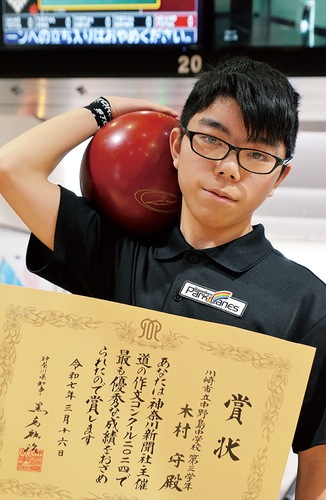 ーンへの立ち入りはおやめください。
20
Park Lanes
賞状
川崎市立中野島中学校 第三学年
木村 守 殿
あなたは神奈川新聞社主催
道の作文コンクール二〇二四で
最も優秀な成績をおさめ
られたので賞します
令和七年三月十六日
神奈川県知事
黒岩祐治